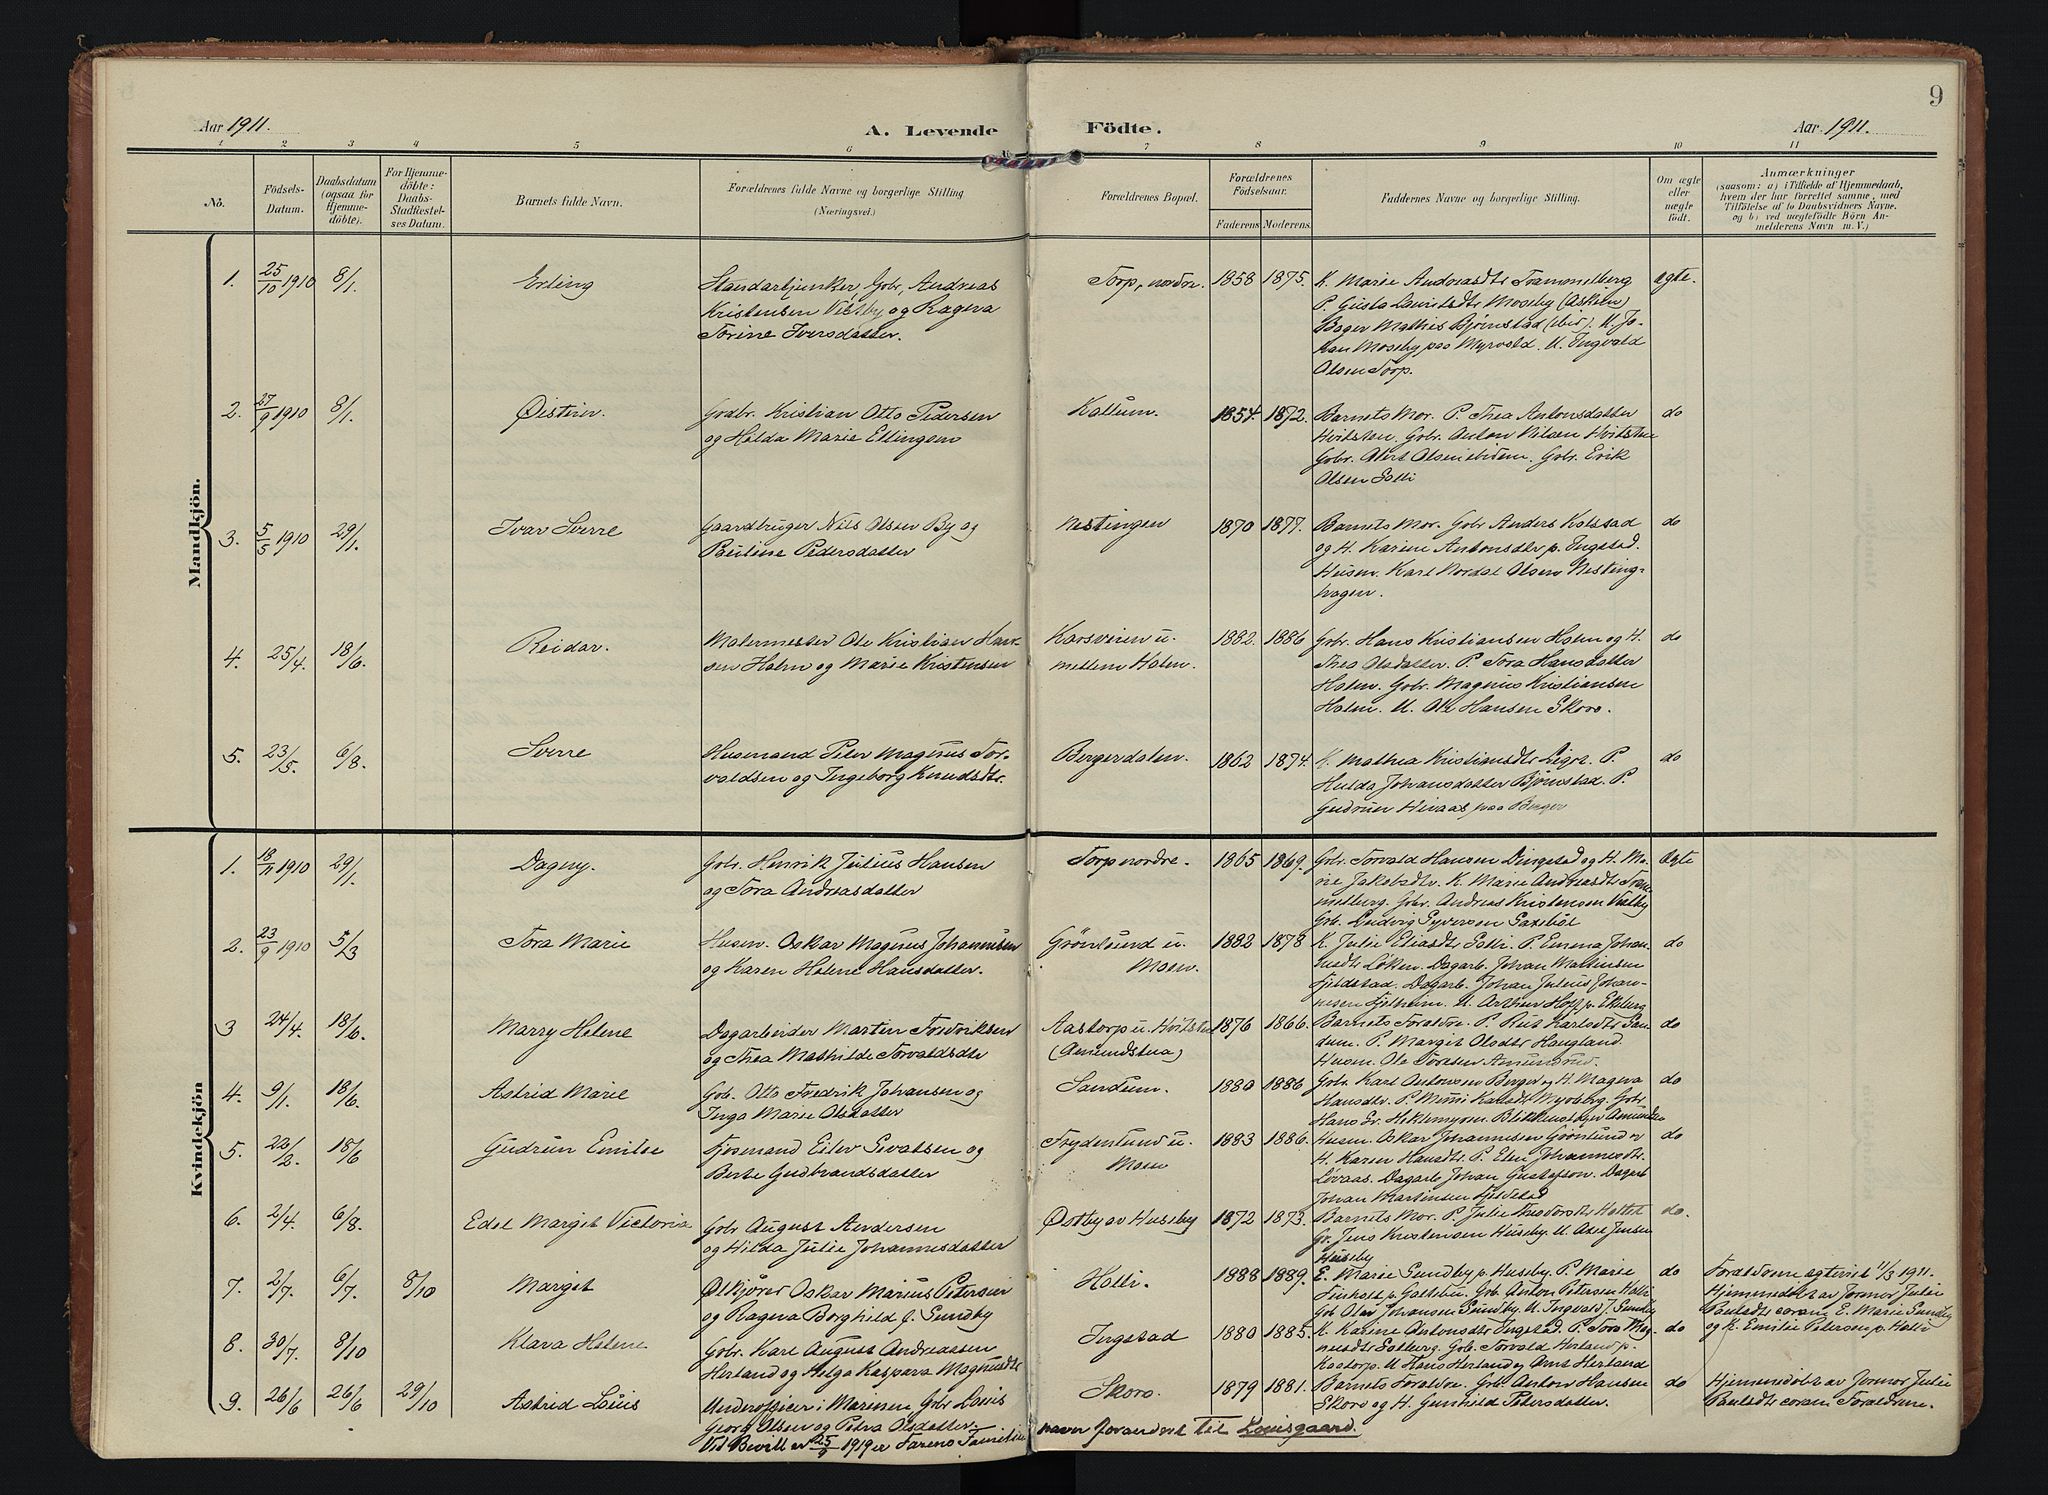 9
Aar 1911.
A. Levende
Födte.
Aar 1911.
1 2 3 4 5 6 7 8 9 10 11
No.
Födsels-
Datum.
Daabsdatum
(ogsaa for
Hjemme-
döbte).
For Hjemme-
döbte:
Daabs-
Stadfæstel-
ses Datum.
Barnets fulde Navn.
Forældrenes fulde Navne og borgerlige Stilling
(Næringsvei.)
Forældrenes Bopæl.
Forældrenes
Födselsaar.
Faderens Moderens.
Faddernes Navne og borgerlige Stilling.
Om ægte
eller
uægte
födt.
Anmærkninger
(saasom: a) i Tilfælde af Hjemmedaab,
hvem der har forrettet samme, med
Tilföielse af to Daabsvidners Navne.
og b) ved uægtefödte Börn An-
melderens Navn m.V.)
Mandkjön.
1. 25/10 1910 8/1. Erling
Standartjunker Gbr. Andreas
Kristensen Vestby og Ragna
Torine Iversdatter.
Torp, nordre. 1858 1875.
K. Marie Andreasdtr Trammelberg
P. Gusta Lauritsdtr Moseby (Askim)
Bager Mathis Bjørnstad (ibid). U. Jo-
han Moseby paa Myrvold. U. Ingvald
Olsen Torp.
ægte.
2. 27/9 1910 8/1. Øistein.
Gadbr. Kristian Otto Pedersen
og Hilda Marie Ellingsen
Kallum. 1854. 1872.
Barnets Mor. P. Thea Antonsdatter
Hvitsten. Gbr. Anton Nilsen Hvitsten
Gbr. Olert Olsen ibidem. Gbr. Erik
Olsen Solli
do
3. 5/5 1910 29/1. Ivar Sverre
Gaardbruger Nils Olsen By og
Pauline Pedersdatter
Nestingen 1870 1877.
Barnets Mor. Gbr Anders Kolstad
og H. Karine Antonsdtr p. Ingstad.
Husm. Karl Nordal Olsen Nesting-
hagen.
do
4. 25/4. 18/6. Reidar.
Malermester Ole Kristian Han-
sen Holm og Marie Kristensen
Karsviren u.
mellem Holm. 1882. 1886
Gbr. Hans Kristiansen Holm og H.
Thea Olsdatter. P. Tora Hansdatter
Holm. Gbr. Magnus Kristiansen
Holm. U. Ole Hansen Skoro.
do
5. 23/5. 6/8. Sverre
Husmand Peter Magnus Tor-
valdsen og Ingeborg Knudsdtr.
Bergerdalen. 1862 1874.
K. Mathea Kristiansdtr P.
Hulda Johansdatter Bjørnstad. P.
Gudrun Hivaas paa Berger
do
Kvindekjön
1. 18/11 1910 29/1. Dagny.
Gbr. Henrik Julius Hansen
og Tora Andreasdatter
Torp nordre. 1865 1869.
Gbr. Torvald Hansen Dingstad og H. Ma-
rie Jakobsdtr. K. Marie Andreasdtr Tram-
melberg. Gbr. Andreas Kristensen Vestby
Gbr. Ludvig Syversen
Ægte
2. 23/9 1910 5/3 Tora Marie
Husm. Oskar Magnus Johannesen
og Karen Helene Hansdatter.
Grönlund u.
Moen. 1882 1878
K. Julie Eliasdtr Solli. P. Emma Johan-
nesdtr Løken. Dagarb. Johan Martinsen
Fjeldstad. Dagarb. Johan Julius Johan-
nesen Fjelheim. U. Arthur Hoff p. Ekeberg
do
3 24/4. 18/6. Marry Helene
Dagarbeider Martin Fredriksen
og Thea Mathilde Torvaldsdtr
Aastorp u. Hvitsten
(Amundstua) 1876 1866.
Barnets Foreldre. P. Rut Karlsdtr San-
dum. P. Margit Olsdtr Haugland.
Husm. Ole Toresen Amundrud
do
4. 9/1. 18/6. Astrid Marie
Gbr. Otto Fredrik Johansen og
Inga Marie Olsdatter
Sandum. 1880 1886
Gbr. Karl Antonsen Berger og H. Magna
Hansdtr. P. Minni Hansdtr Gbr.
Hans Gr.
do
5. 22/2. 18/6 Gudrun Emilie
Fjøsmand Eilev Sivalsen og
Berte Gudbrandsdatter
Frydenlund u.
Moen 1883 1886.
Husm. Oskar Johannesen Grønlund og
H. Karen Hansdtr. P. Elen Johannesdtr
Løvaas. Dagarb. Johan Gustafson. Dagarb
Johan Martinsen Fjeldstad
do
6. 2/4. 6/8. Edel Margit Victoria
Gbr August Andersen
og Hilda Julie Johannesdatter
Østby av Huseby 1872 1873.
Barnets Mor. P. Julie Theodorsdtr Holtet
Gr. Jens Kristensen Huseby. U. Axel Jensen
Huseby
do.
7. 2/7. 6/7. 8/10 Margit
Ølkjører Oskar Marius Petersen
og Ragna Borghild f. Sundby
Holli. 1888 1889.
E. Marie Sundby p. Huseby. P. Marie
Finholt p. Gbr. Anton Petersen Holli
Gbr Olav Johansen Sundby. U. Ingvald J. Sundby
do
Foreldrene egteviet 11/3 1911.
Hjemmedøbt av Jormor Julie
Paulsdtr coram E. Marie Sundby
og K. Emilie Petersen p. Holli
8. 30/7. 8/10 Klara Helene
Gbr. Karl August Andreassen
Herland og Helga Kaspara Magnusdtr
Ingstad 1880 1885.
K. Karine Antonsdtr Ingstad. P. Tora Mag-
nusdtr Solberg. Gbr. Torvald Herland p.
Kaatorp. U. Hans Herland og Arnt Herland
do
9. 26/6 26/6 29/10 Astrid Louis
Underofficer i Marinen Gbr Louis
Georg Olsen og Petra Olsdatter.
Skoro. 1879 1881.
Barnets Foreldre. Gbr. Anton Hansen
Skoro og H. Gunhild Petersdatter.
do
Hjemmedøbt av Jormor Julie
Paulsdtr coram Foreldrene.
Ved Bevill. er 25/9 1919 er Farens Familie
navn forandret til Louisgaard.